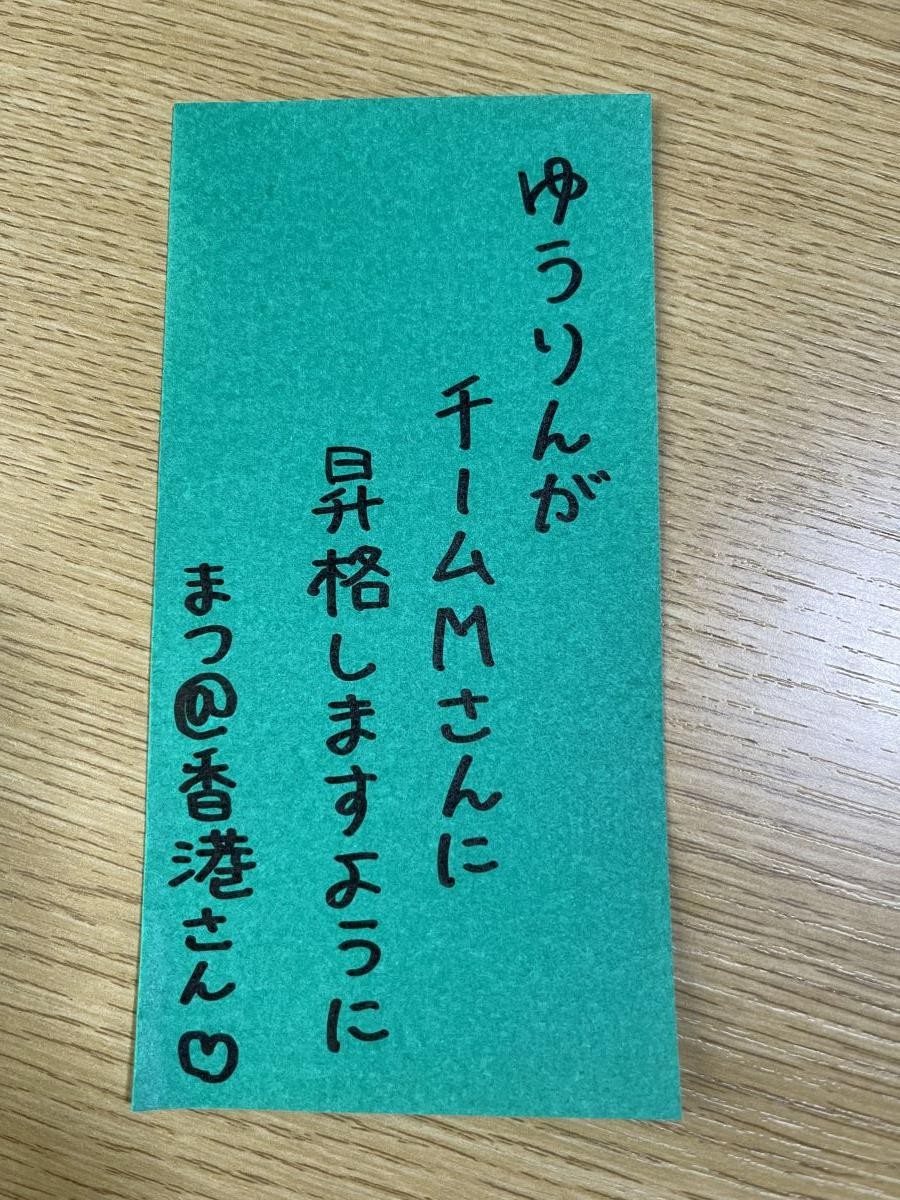 ゆうりんが
チームMさんに
昇格しますように
まつ@香港さん♡